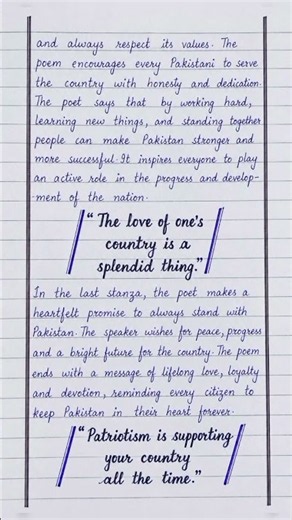 and always respect its values. The
poem encourages every Pakistani to serve
the country with honesty and dedication.
The poet says that by working hard,
learning new things, and standing together
people can make Pakistan stronger and
more successful. It inspires everyone to play
an active role in the progress and develop-
-ment of the nation.
"The love of one's
country is a
splendid thing."
In the last stanza, the poet makes a
heartfelt promise to always stand with
Pakistan. The speaker wishes for peace, progress
and a bright future for the country. The poem
ends with a message of lifelong love, loyalty
and devotion, reminding every citizen to
keep Pakistan in their heart forever.
"Patriotism is supporting
your country
all the time."